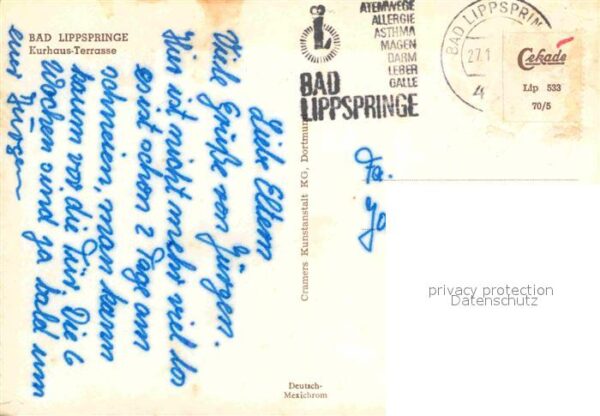 BAD LIPPSPRINGE
Kurhaus-Terrasse
ATEMWEGE
ALLERGIE
ASTHMA
MAGEN
DARM
LEBER
GALLE
BAD
LIPPSPRINGE
BAD LIPPSPRIN
27.1
4
Cekade
Lip 533
70/5
Liebe Eltern
Viele Grüße von Jürgen.
Hier ist nicht mehr viel los
es ist schon 2 Tage am
schneien, man kann
kaum vor die Tür. Die 6
Wochen sind ja bald um
euer Jürgen
Cramers Kunstanstalt KG, Dortmund
Deutsch-
Mexichrom
privacy protection
Datenschutz